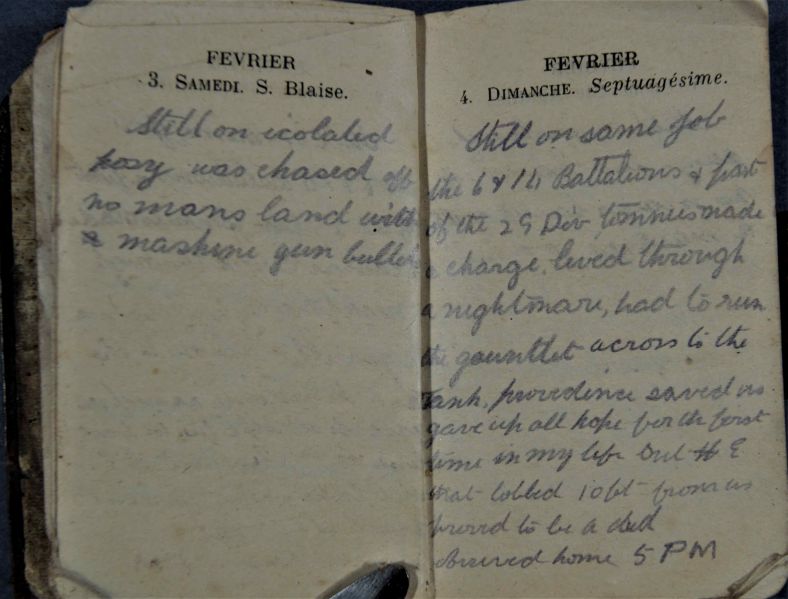 FEVRIER
3. SAMEDI. S. Blaise.
Still on icolated
posy was chased off
no mans land with
& mashine gun bullet
FEVRIER
4. DIMANCHE. Septuagésime.
Still on same job
the 6 & 14 Battalions & part
of the 29 Div tommies made
a charge, lived through
a nightmare, had to run
the gauntlet across to the
Tank, providence saved us
gave up all hope for the first
time in my life but H E
that lobbed 10 ft from us
proved to be a dud
arrived home 5 PM